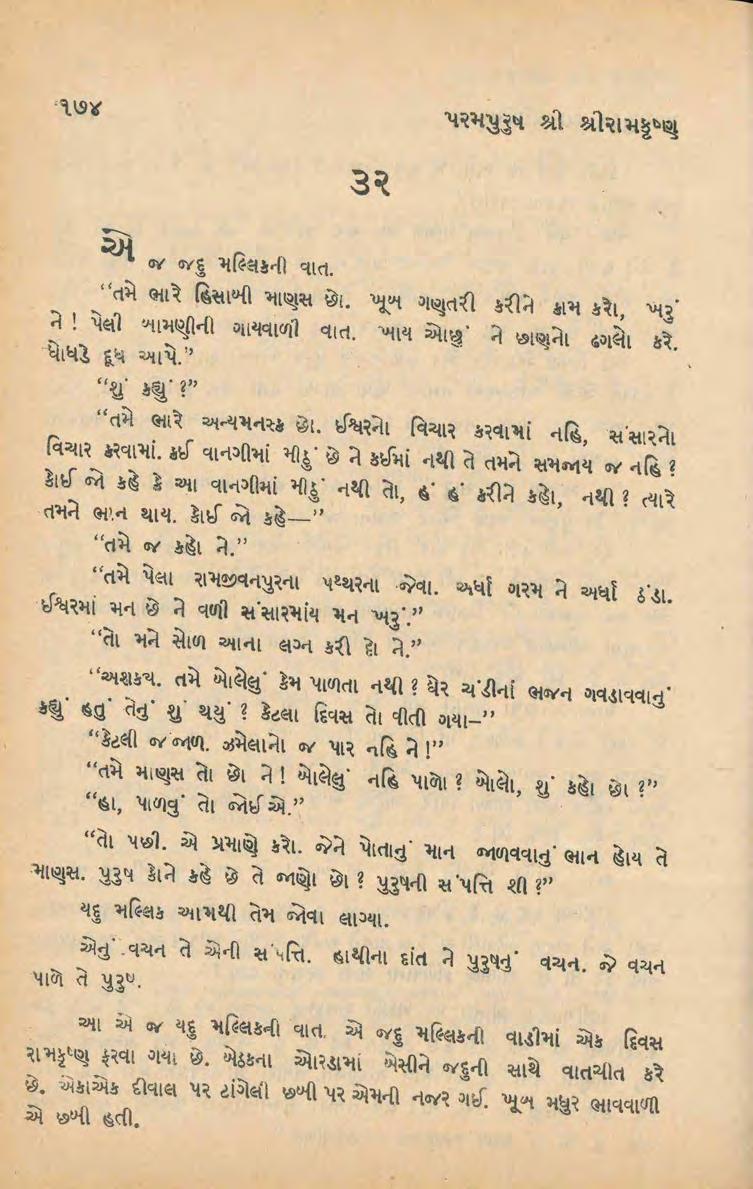 ૧૭૪
પરમપુરુષ શ્રી શ્રીરામકૃષ્ણ
૩૨
એ જ જદુ મલ્લિકની વાત.
“તમે ભારે હિસાબી માણસ છો. ખૂબ ગણતરી કરીને કામ કરો, ખરું
ને ! પેલી બામણીની ગાયવાળી વાત. ખાય ઓછું ને છાણનો ઢગલો કરે.
ધોધડે દૂધ આપે.”
“શું કહ્યું ?”
“તમે ભારે અન્યમનસ્ક છો. ઈશ્વરનો વિચાર કરવામાં નહિ, સંસારનો
વિચાર કરવામાં. કઈ વાનગીમાં મીઠું છે ને કઈમાં નથી તે તમને સમજાય જ નહિ ?
કોઈ જો કહે કે આ વાનગીમાં મીઠું નથી તો, હં હં કરીને કહો, નથી ? ત્યારે
તમને ભાન થાય. કોઈ જો કહે—”
“તમે જ કહો ને.”
“તમે પેલા રામજીવનપુરના પથ્થરના જેવા. અર્ધા ગરમ ને અર્ધા ઠંડા.
ઈશ્વરમાં મન છે ને વળી સંસારમાંય મન ખરું.”
“તો મને સોળ આના લગ્ન કરી દો ને.”
“અશક્ય. તમે બોલેલું કેમ પાળતા નથી ? ઘેર ચંડીનાં ભજન ગવડાવવાનું
કહ્યું હતું તેનું શું થયું ? કેટલા દિવસ તો વીતી ગયા–”
“કેટલી જંજાળ. ઝમેલાનો જ પાર નહિ ને !”
“તમે માણસ તો છો ને ! બોલેલું નહિ પાળો ? બોલો, શું કહો છો ?”
“હા, પાળવું તો જોઈએ.”
“તો પછી. એ પ્રમાણે કરો. જેને પોતાનું માન જાળવવાનું ભાન હોય તે
માણસ. પુરુષ કોને કહે છે તે જાણો છો ? પુરુષની સંપત્તિ શી ?”
યદુ મલ્લિક આમથી તેમ જોવા લાગ્યા.
એનું વચન તે એની સંપત્તિ. હાથીના દાંત ને પુરુષનું વચન. જે વચન
પાળે તે પુરુષ.
આ એ જ યદુ મલ્લિકની વાત. એ જદુ મલ્લિકની વાડીમાં એક દિવસ
રામકૃષ્ણ ફરવા ગયા છે. બેઠકના ઓરડામાં બેસીને જદુની સાથે વાતચીત કરે
છે. એકાએક દીવાલ પર ટાંગેલી છબી પર એમની નજર ગઈ. ખૂબ મધુર ભાવવાળી
એ છબી હતી.